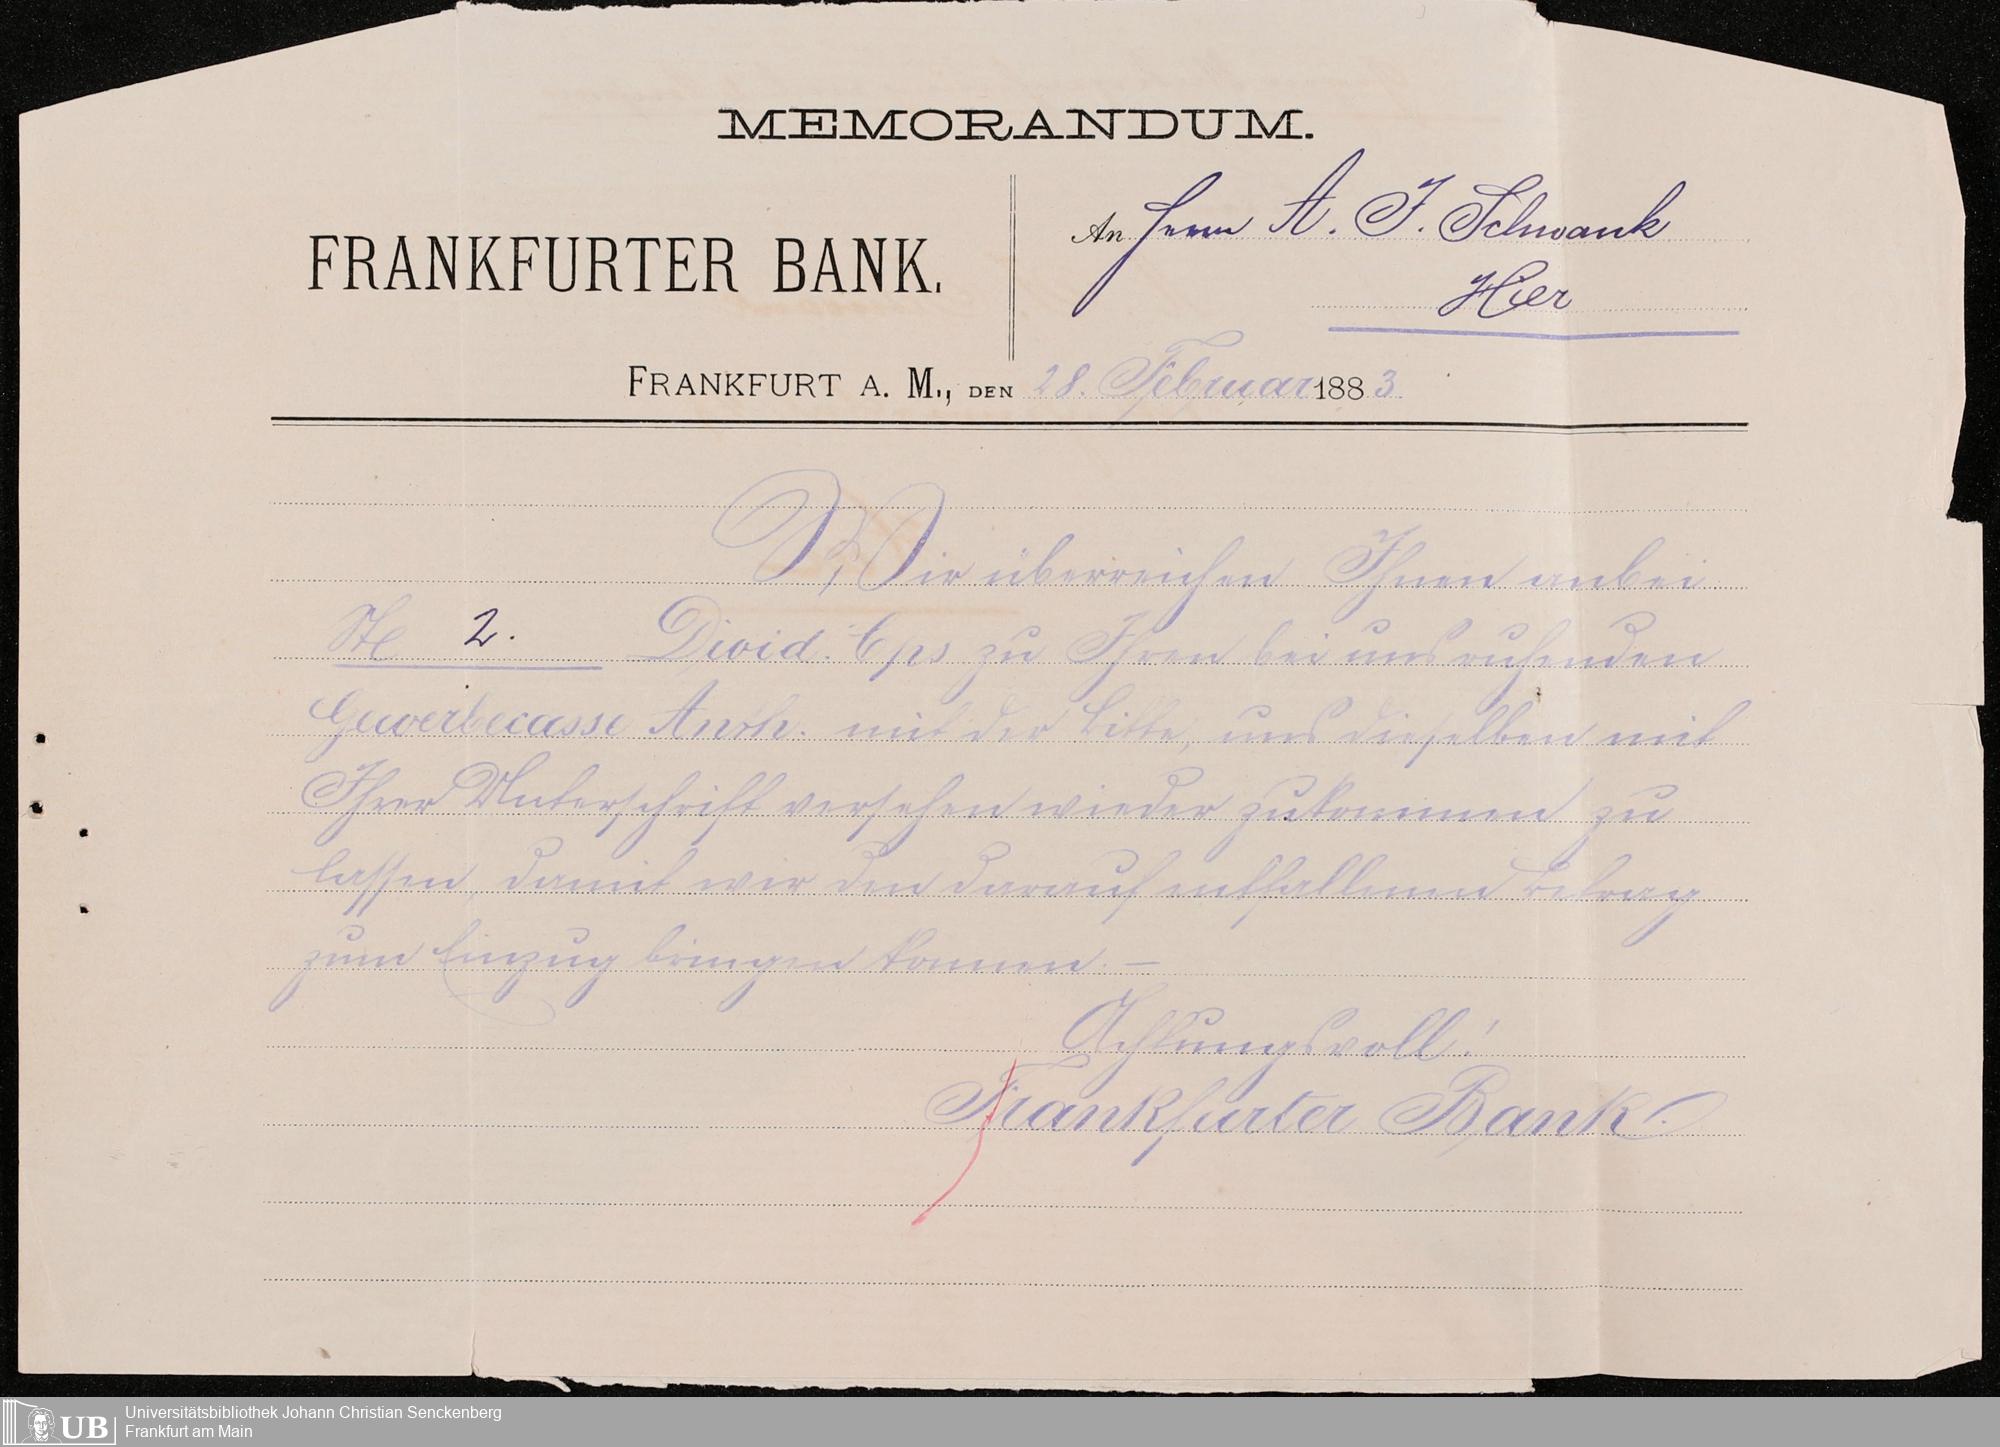 MEMORANDUM.
FRANKFURTER BANK.
An Herrn A. J. Schwank
Hier
FRANKFURT A. M., DEN 28. Februar 1883.
Wir überreichen Ihnen anbei
St 2. Divid. Cps zu Ihren bei uns ruhenden
Gewerbecasse Anth. mit der Bitte, uns dieselben mit
Ihrer Unterschrift versehen wieder zukommen zu
lassen, damit wir den darauf entfallenen Betrag
zum Einzug bringen können. –
Achtungsvoll!
Frankfurter Bank.
UB
Universitätsbibliothek Johann Christian Senckenberg
Frankfurt am Main